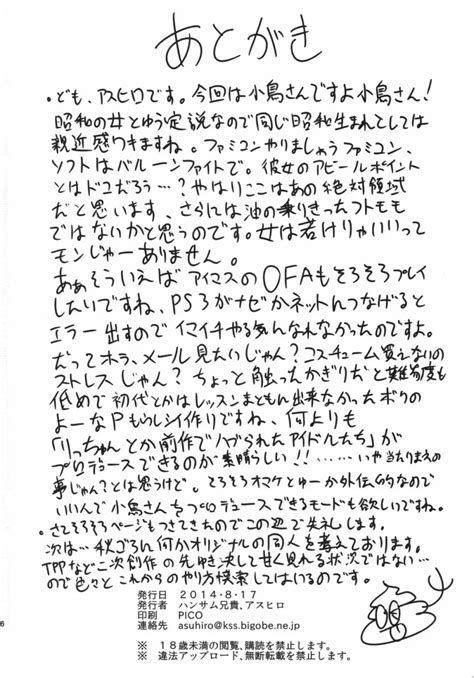 あとがき
・ども、アスヒロです。今回は小鳥さんですよ小鳥さん!
昭和の女とゆう定説なので同じ昭和生まれとしては
親近感ワキますね。ファミコンやりましょうファミコン、
ソフトはバルーンファイトで。彼女のアピールポイント
とはドコだろう…?やはりここはあの絶対領域
だと思います、さらには油の乗りきったフトモモ
ではないかと思うのです。女は若けりゃいいって
モンじゃーありません。
ああそういえばアイマスのOFAもそろそろプレイ
したいですね、PS3がナゼかネットにつなげると
エラー出すのでイマイチやる気になれなかったのですよ。
だってホラ、メール見たいじゃん?コスチューム買えないの
ストレスじゃん?ちょっと触ったかぎりだと難易度も
低めで初代とかはレッスンまともに出来なかったボクの
よーなPもうれしイ作りですね、何よりも
「りっちゃんとか前作でハブられたアイドルたち」が
プロデュースできるのが素晴らしい!!……いや当たりまえの
事じゃん?とは思うけど。そろそろオマケとゆーか外伝的なので
いいんで小鳥さんをプロデュースできるモードも欲しいですね。
・さてそろそろページもつきてきたのでこの辺で失礼します。
次は…秋ごろに何かオリジナルの同人を考えております。
TPPなど二次創作の先ゆき決して甘く見れる状況ではない…
ので色々とこれからのやり方模索してはいるのです。
発行日 2014・8・17
発行者 ハンサム兄貴、アスヒロ
印刷 PICO
連絡先 asuhiro@kss.biglobe.ne.jp
※ 18歳未満の閲覧、購読を禁止します。
※ 違法アップロード、無断転載を禁止します。
6